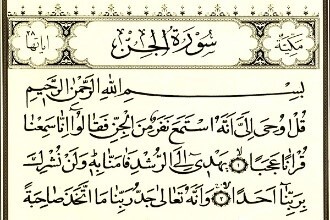 مكية سورة الجن آياتها ٢٨
بِسْمِ اللَّهِ الرَّحْمَٰنِ الرَّحِيمِ
قُلْ أُوحِيَ إِلَيَّ أَنَّهُ اسْتَمَعَ نَفَرٌ مِنَ الْجِنِّ فَقَالُوا إِنَّا سَمِعْنَا
قُرْآنًا عَجَبًا ۝ يَهْدِي إِلَى الرُّشْدِ فَآمَنَّا بِهِ وَلَنْ نُشْرِكَ
بِرَبِّنَا أَحَدًا ۝ وَأَنَّهُ تَعَالَىٰ جَدُّ رَبِّنَا مَا اتَّخَذَ صَاحِبَةً